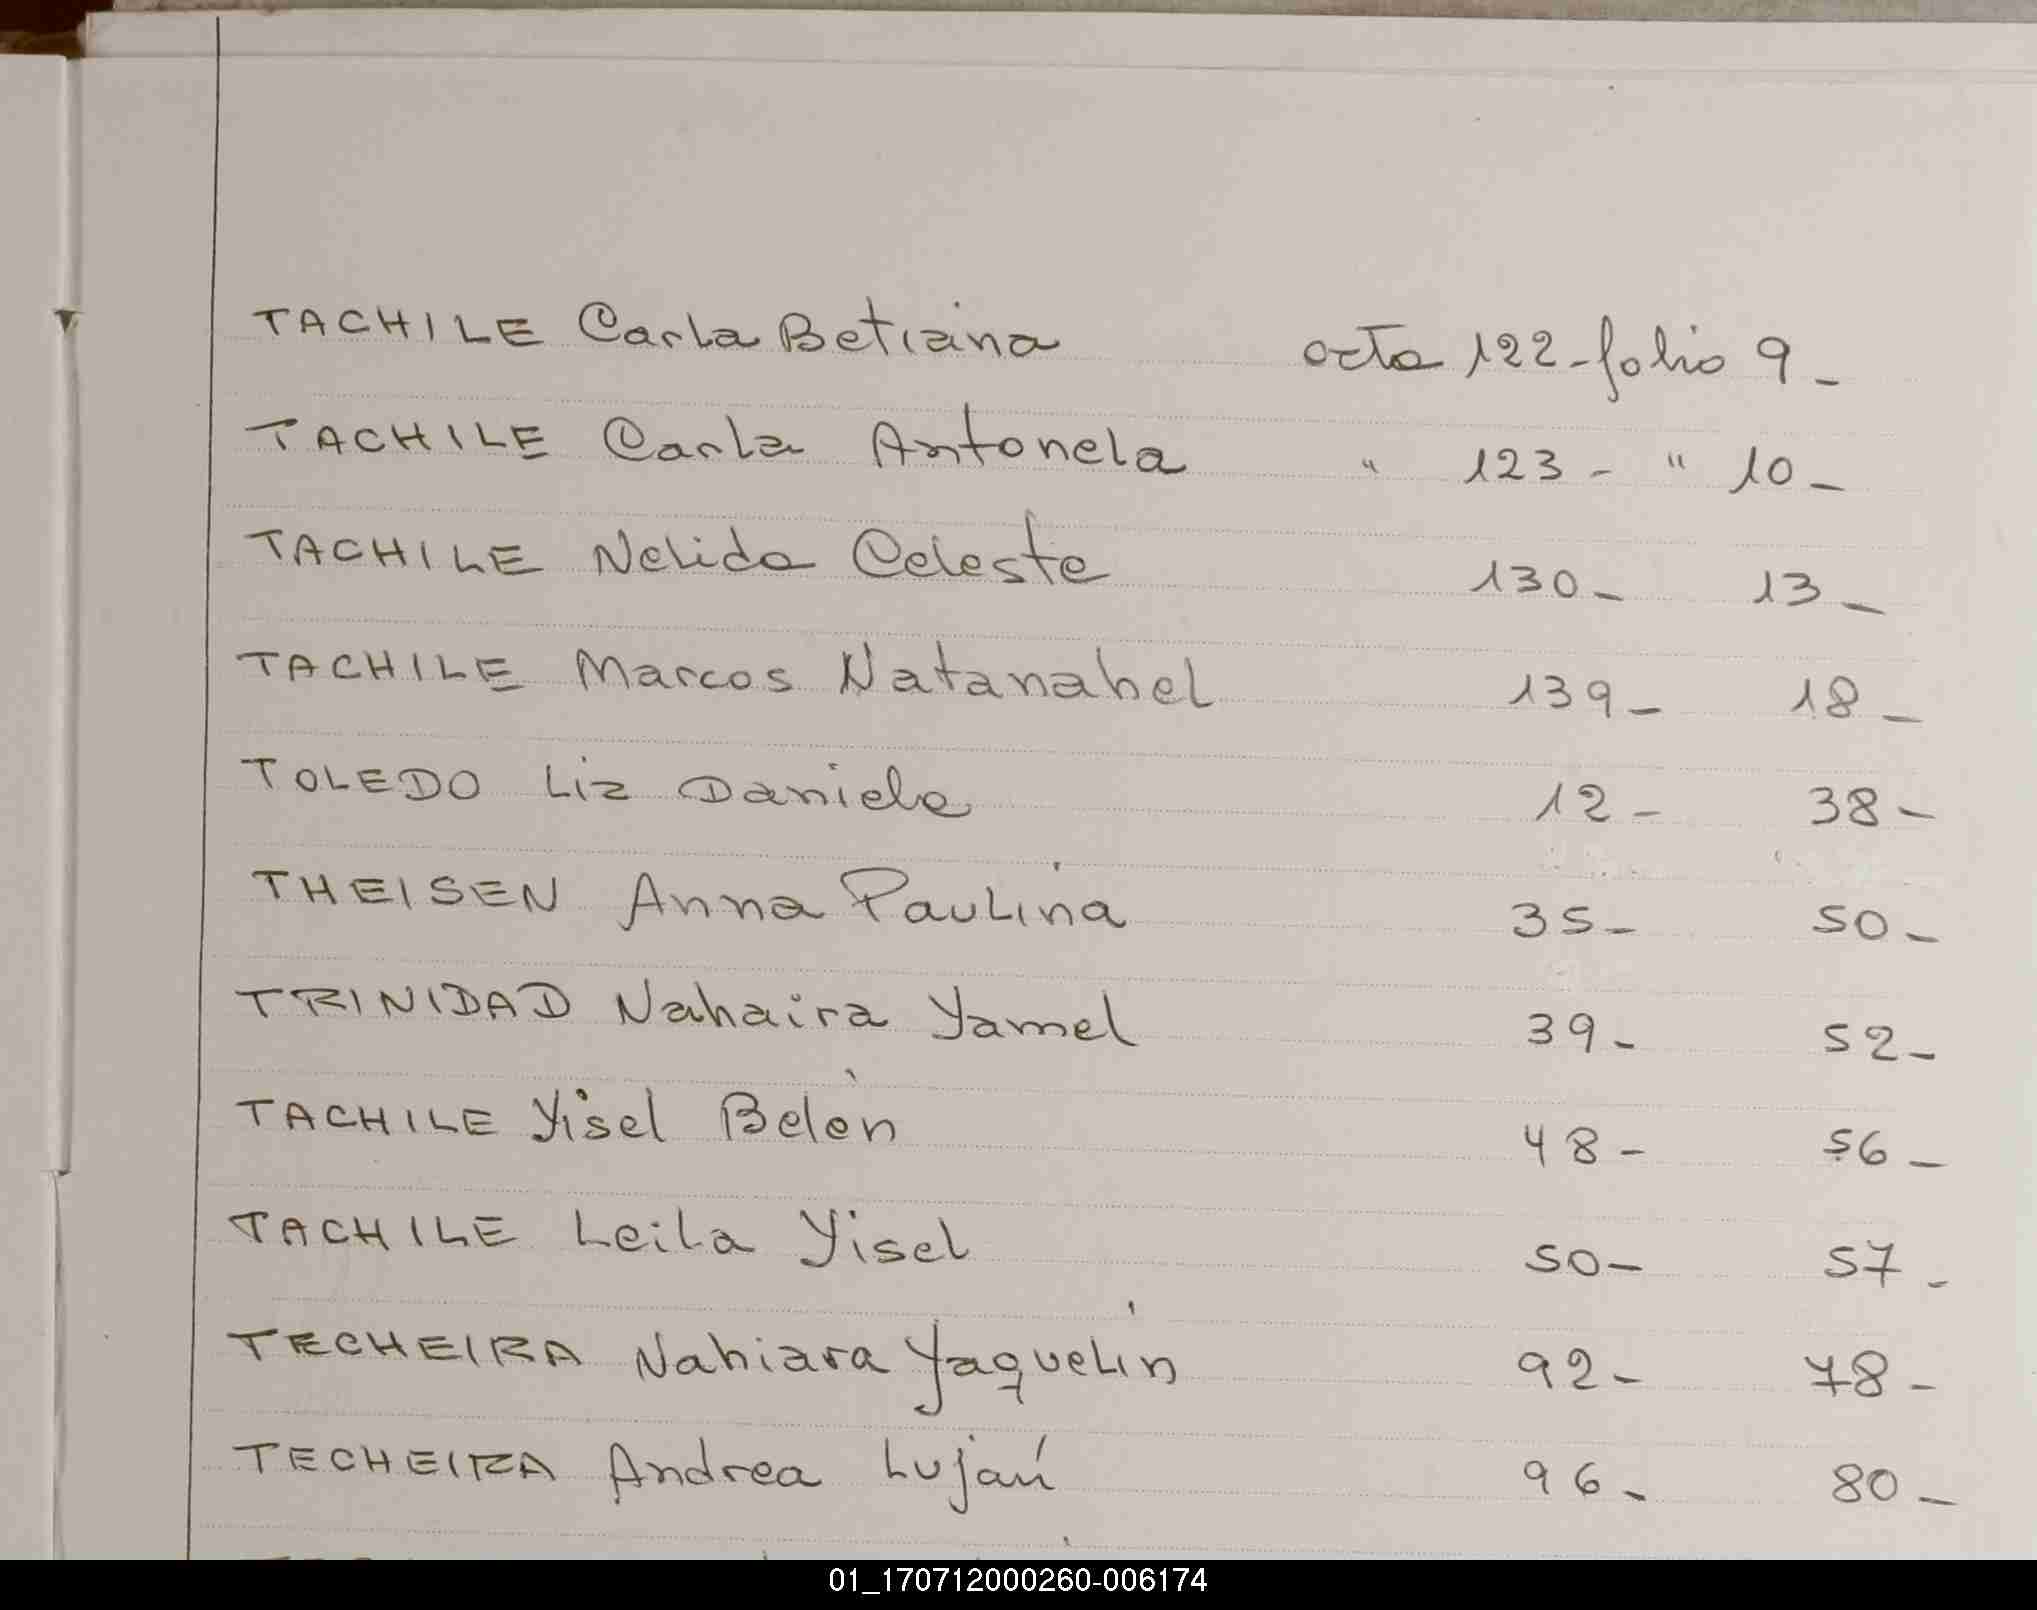 TACHILE Carla Betiana acta 122 - folio 9 -
TACHILE Carla Antonela " 123 - " 10 -
TACHILE Nelida Celeste 130 - 13 -
TACHILE Marcos Natanahel 139 - 18 -
TOLEDO Liz Daniela 12 - 38 -
THEISEN Anna Paulina 35 - 50 -
TRINIDAD Nahaira Yamel 39 - 52 -
TACHILE Yisel Belén 48 - 56 -
TACHILE Leila Yisel 50 - 57 -
TECHEIRA Nahiara Yaquelín 92 - 78 -
TECHEIRA Andrea Luján 96 - 80 -
01_170712000260-006174